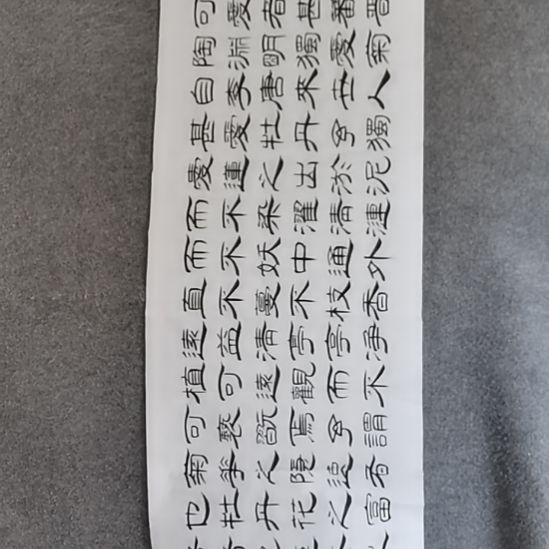 可愛者甚蕃晉
陶淵明獨愛菊
自李唐來世人
甚愛牡丹予獨
愛蓮之出淤泥
而不染濯清漣
而不妖中通外
直不蔓不枝香
遠益清亭亭淨
植可遠觀而不
可褻翫焉予謂
菊華之隱逸者
也牡丹花之富